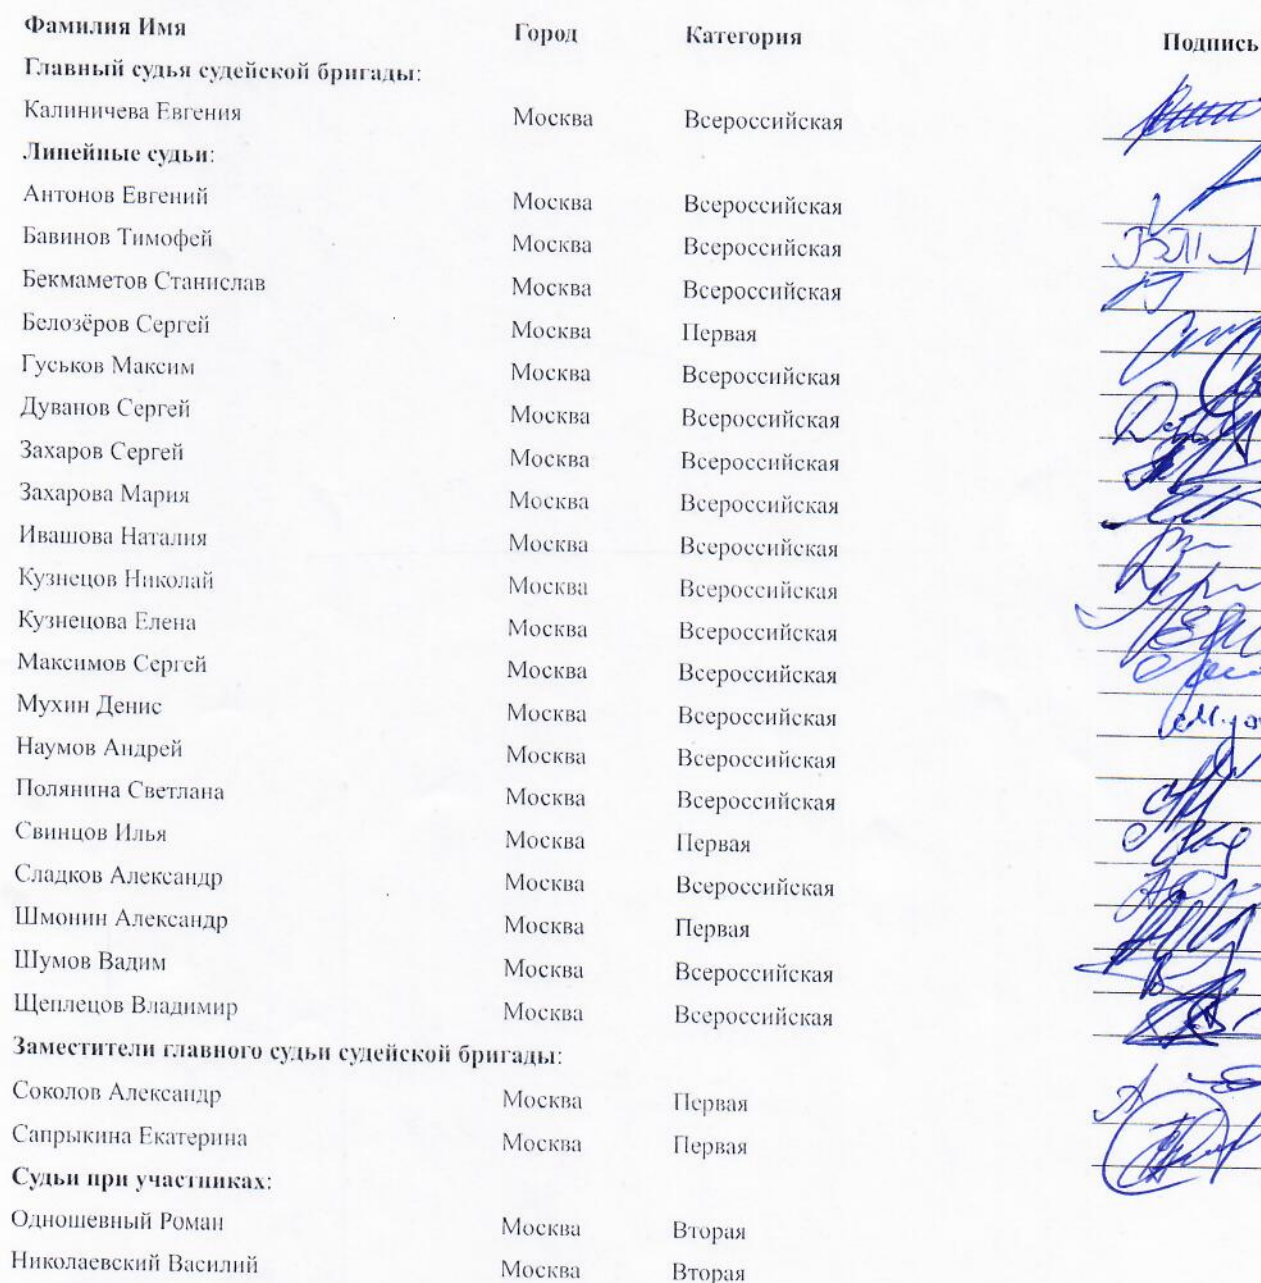 Фамилия Имя Город Категория Подпись
Главный судья судейской бригады:
Калиничева Евгения Москва Всероссийская
Линейные судьи:
Антонов Евгений Москва Всероссийская
Бавинов Тимофей Москва Всероссийская
Бекмаметов Станислав Москва Всероссийская
Белозёров Сергей Москва Первая
Гуськов Максим Москва Всероссийская
Дуванов Сергей Москва Всероссийская
Захаров Сергей Москва Всероссийская
Захарова Мария Москва Всероссийская
Ивашова Наталия Москва Всероссийская
Кузнецов Николай Москва Всероссийская
Кузнецова Елена Москва Всероссийская
Максимов Сергей Москва Всероссийская
Мухин Денис Москва Всероссийская
Наумов Андрей Москва Всероссийская
Полянина Светлана Москва Всероссийская
Свинцов Илья Москва Первая
Сладков Александр Москва Всероссийская
Шмонин Александр Москва Первая
Шумов Вадим Москва Всероссийская
Щеплецов Владимир Москва Всероссийская
Заместители главного судьи судейской бригады:
Соколов Александр Москва Первая
Сапрыкина Екатерина Москва Первая
Судьи при участниках:
Одношевный Роман Москва Вторая
Николаевский Василий Москва Вторая